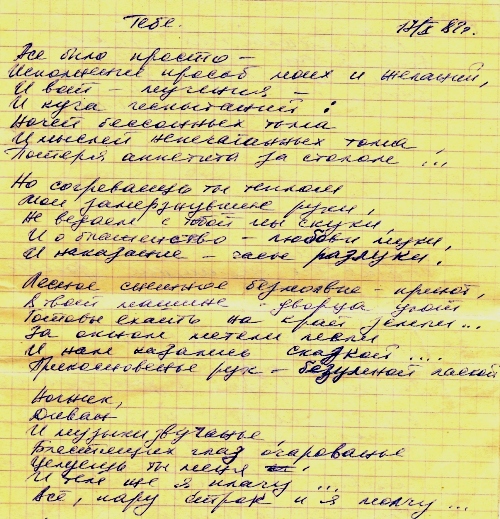 Тебе. 17/XI 82г.
Все было просто –
Исполнение просьб моих и желаний,
И вой – мучения –
И куча испытаний:
Ночей бессонных тома
И мыслей нечитанных тома,
Потеря аппетита за столом ...
Но согреваешь ты теплом
Мои замерзнувшие руки,
Не ведаем с тобой мы скуки,
И о блаженство – любви муки,
И наказание – часы разлуки.
Лесное снежное безмолвие – приют,
В твоей машине – дворца уют
Готовы ехать на край земли ...
За окном метели песни
И нам казались сказкой ....
Прикосновенье рук – безумной лаской
Ночник,
Диван
И музыки звучанье,
Блестящих глаз очарованье
Целуешь ты меня
И тем же я плачу ...
Всё, пару строк и я молчу ...